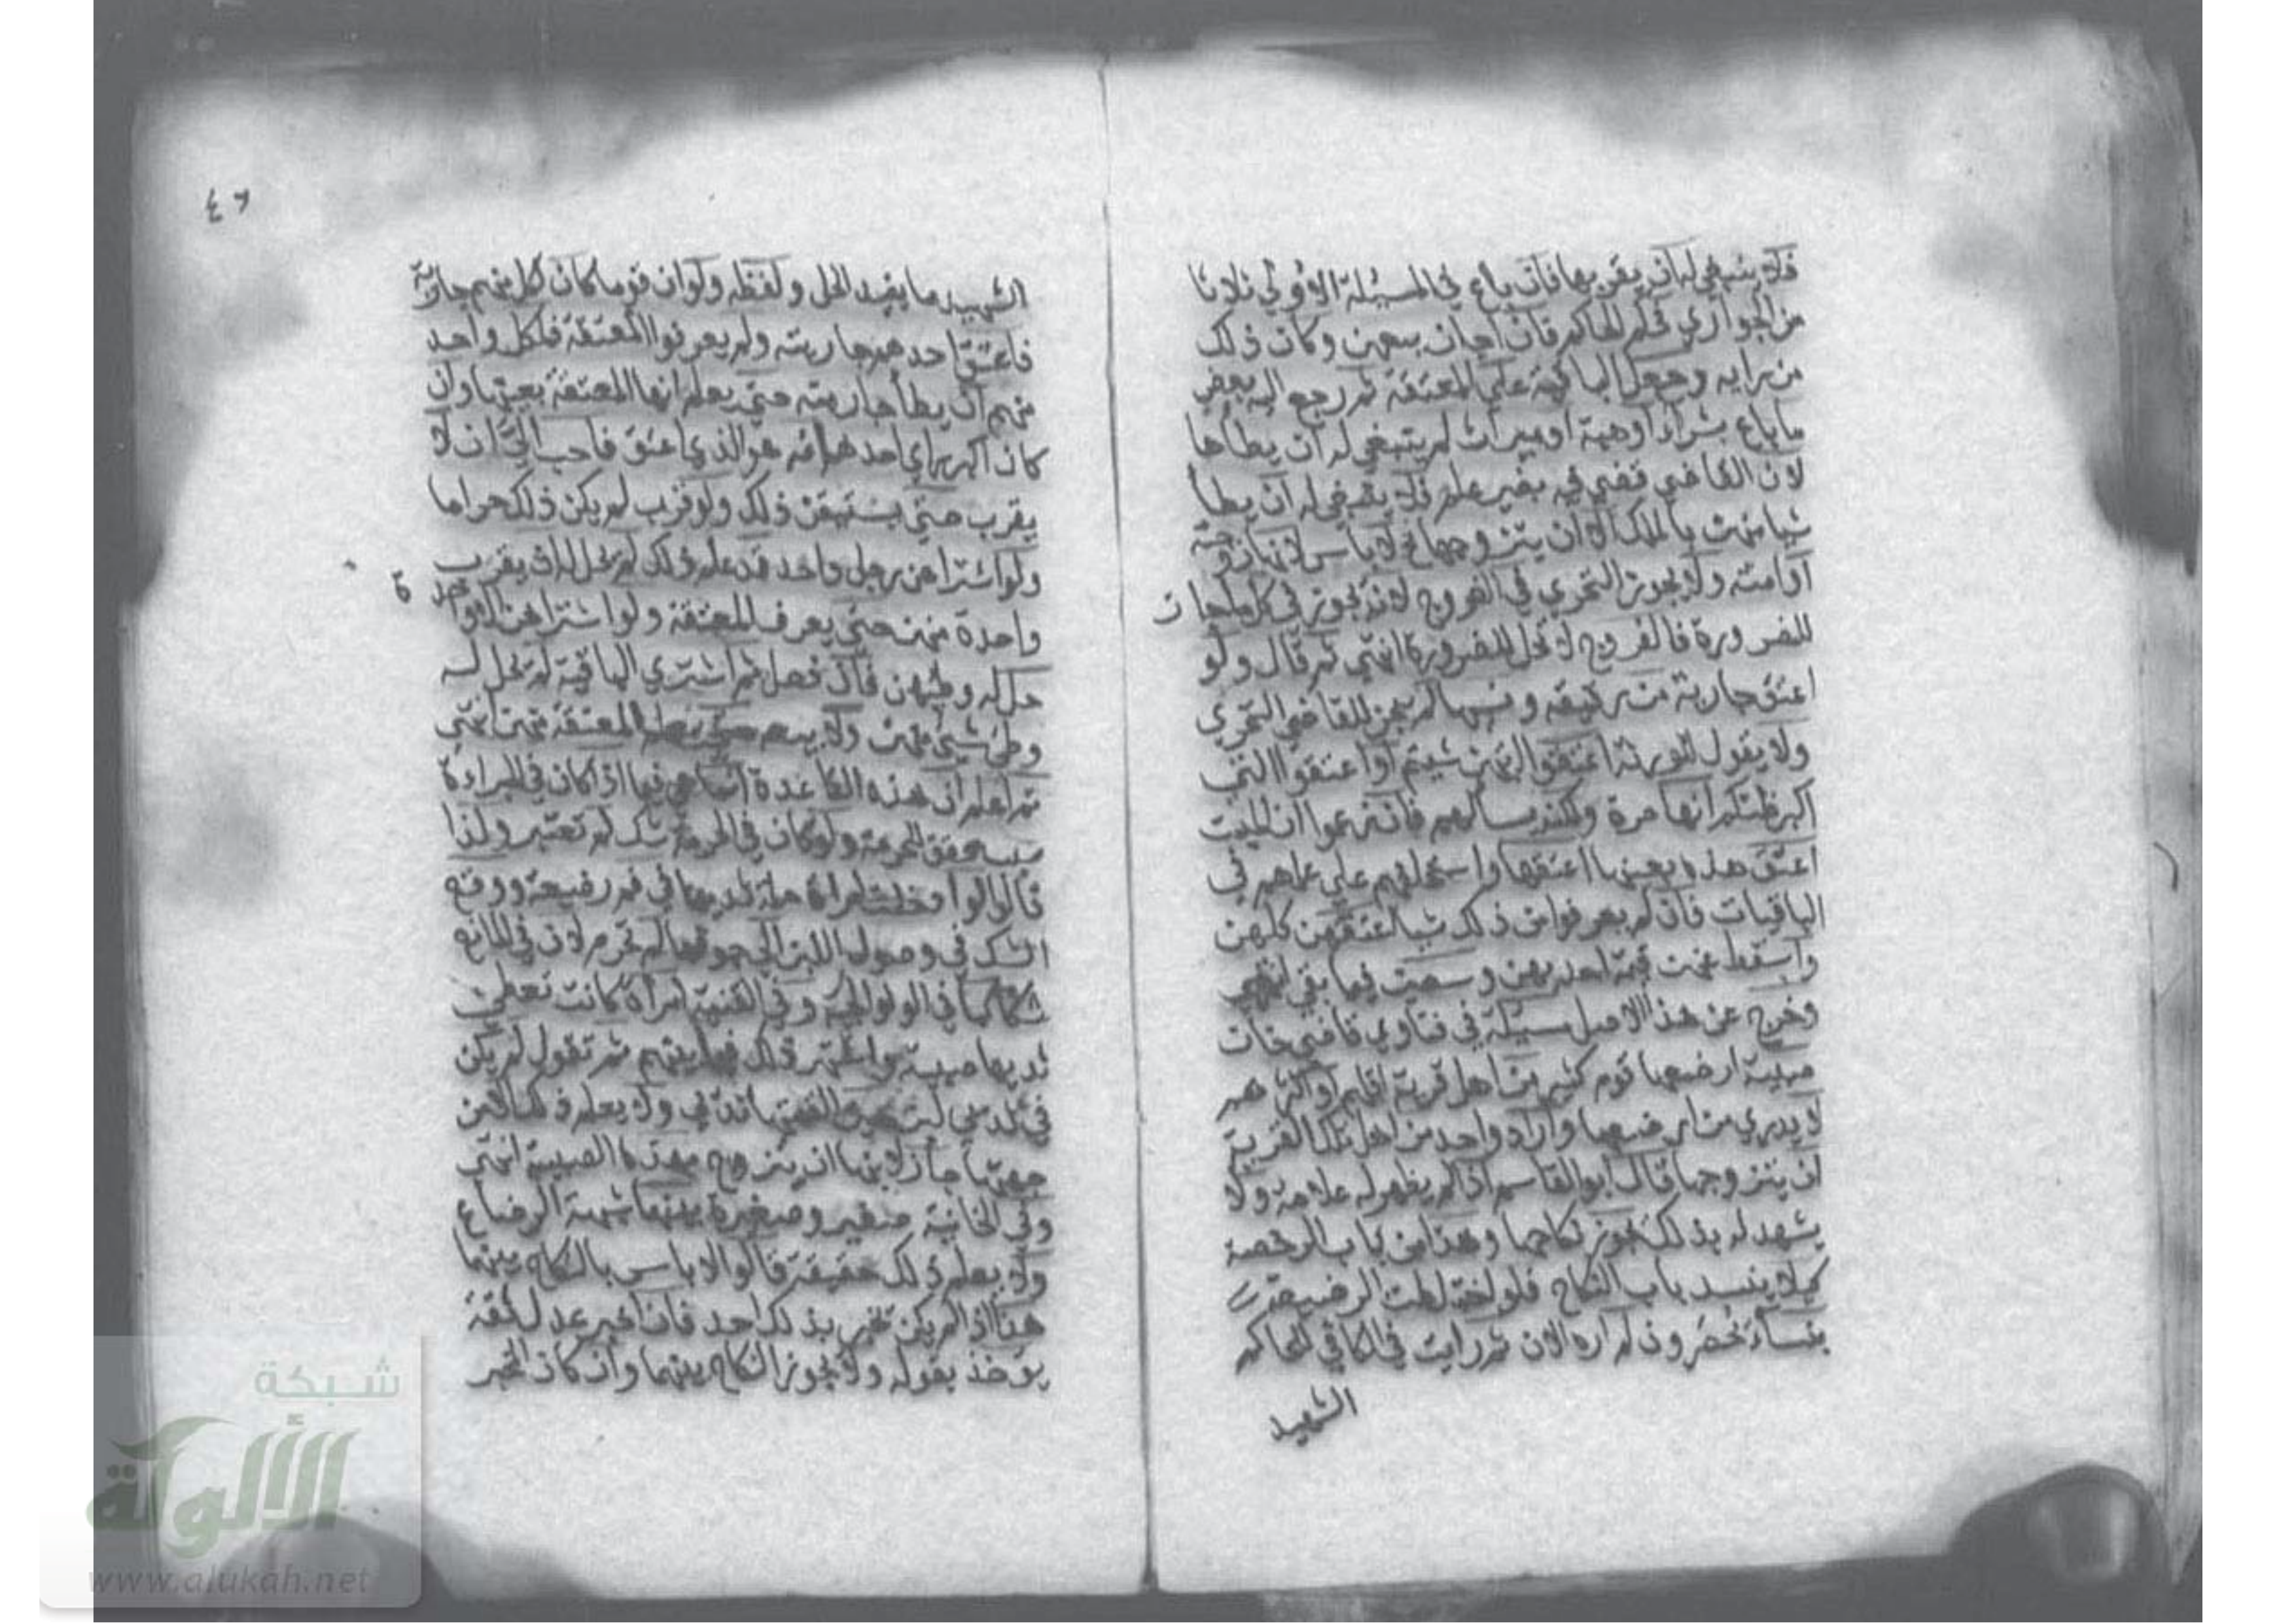 فلا ينبغي له ان يقربها فان باع في المسئلة الاولي ثلاثا
من الجواري فحكم الحاكم فان اجاز بيعهن وكان ذلك
من رايه وجعل الباقية هي المعتقة ثم رجع اليه بعض
ما باع بشراء او هبة او ميراث لم ينبغي له ان يطأها
لان القاضي قضي فيه بغير علم فلا ينبغي له ان يطأ
شيا منهن بالملك الا ان يتزوجها فح لا باس لانها زوجته
او امته ولا يجوز التحري في الفروج لانه يجوز في كل ما جاز
للضرورة فالفروج لا تحل للضرورة انتهي ثم قال ولو
اعتق جارية من رقيقه ونسيها لم يجز للقاضي التحري
ولا يقول للورثة اعتقوا اليهن شيتم او اعتقوا التي
اكبر ظنكم انها حرة ولكنه يسالهم فان زعموا ان الميت
اعتق هذه بعينها اعتقها واستحلفهم علي علمهم في
الباقيات فان لم يعرفوا من ذلك شيا اعتقهن كلهن
واسقط عنهن قيمة احديهن وسعين فيما بقي انتهي
وخرج عن هذا الاصل مسئلة في فتاوي قاضي خان
صبية ارضعها قوم كثير من اهل قرية اقلهم او اكثرهم
لا يدري من ارضعها واراد واحد من اهل تلك القرية
ان يتزوجها قال ابو القاسم اذا لم يظهر له علامة ولا
يشهد له بذلك يجوز نكاحها وهذا من باب الرخصة
كيلا ينسد باب النكاح فلو اختلطت الرضيعة
بنساء يحصرون لم اره الان ثم رايت في الكافي للحاكم
الشهيد
٤٦
الشهيد ما يفيد الحل ولفظه ولو ان قوما كان لكل منهم جارية
فاعتق احدهم جاريته ولم يعرفوا المعتقة فلكل واحد
منهم ان يطأ جاريته حتي يعلم انها المعتقة بعينها وان
كان اكبر راي احدهم انه هو الذي اعتق فاحب الي ان لا
يقرب حتي يستيقن ذلك ولو قرب لم يكن ذلك حراما
ولو اشتراهن رجل واحد قد علم ذلك لم يحل له ان يقرب
واحدة منهن حتي يعرف المعتقة ولو اشتراهن الا واحدة
حل له وطيهن فان فعل ثم اشتري الباقية لم تحل له
وطي شيئ منهن ولا بيعه حتي يعلم المعتقة منهن انتهي
ثم اعلم ان هذه القاعدة انما هي فيما اذا كان في المراة
سبب محقق للحرمة ولو كان في الحرمة شك لم تعتبر ولذا
قالوا لو ادخلت امراة حلمة ثديها في فم رضيعة ووقع
الشك في وصول اللبن الي جوفها لم تحرم لان في المانع
شكا كما في الولوالجي وفي القنية امراة كانت تعطي
ثديها صبية واشتهر ذلك فيما بينهم ثم تقول لم يكن
في ثديي لبن حين القمتها ثديي ولا يعلم ذلك الا من
جهتها جاز لابنها ان يتزوج بهذه الصبية انتهي
وفي الخانية صغير وصغيرة بينهما شبهة الرضاع
ولا يعلم ذلك حقيقة قالوا لا باس بالنكاح بينهما
هذا اذا لم يكن يخبر بذلك احد فان اخبر عدل ثقة
يوخذ بقوله ولا يجوز النكاح بينهما وان كان الخبر
شبكة
الألوكة
www.alukah.net